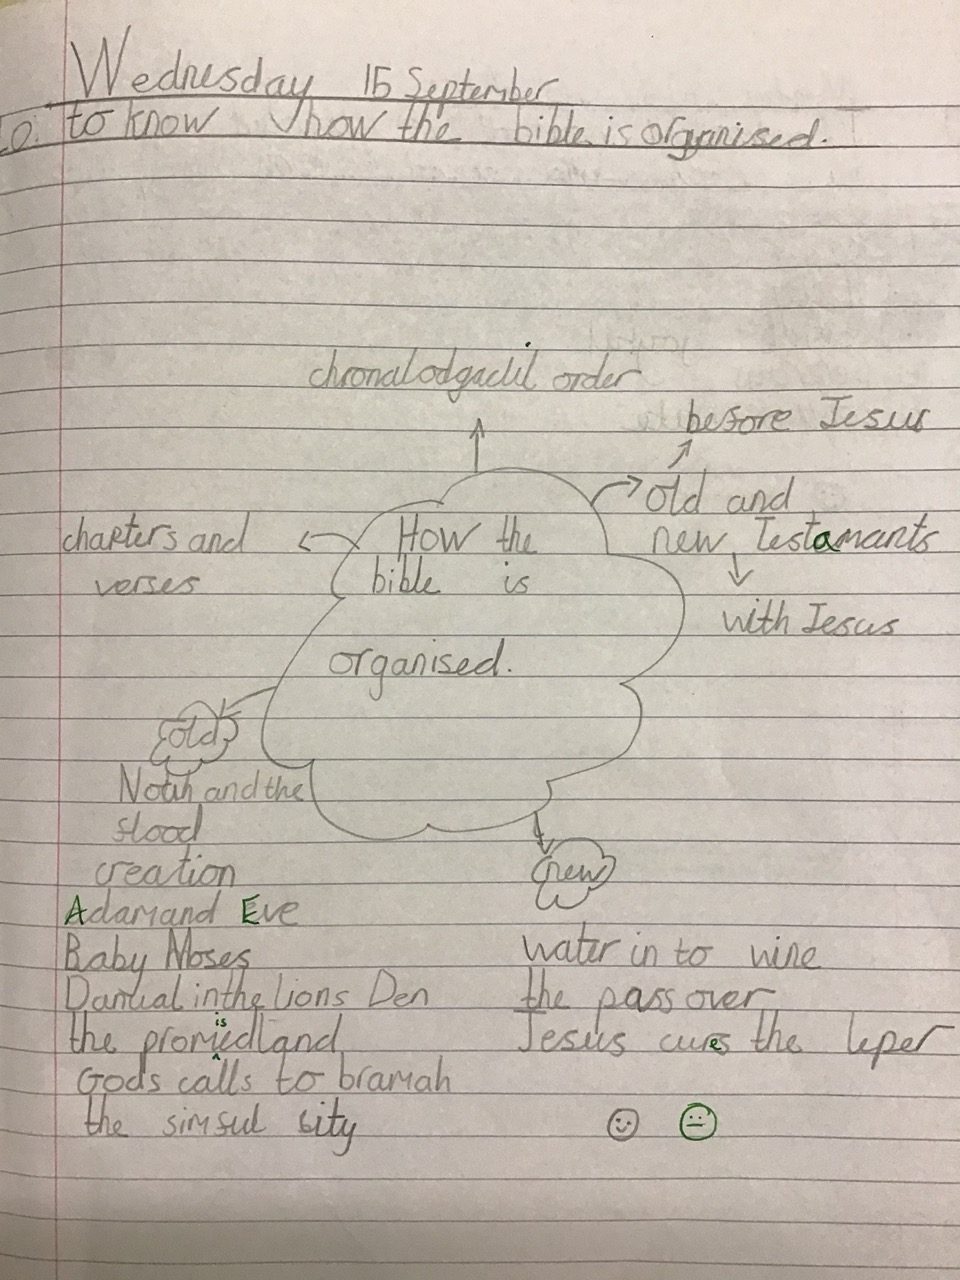 Wednesday 15 September
L.O. to know how the bible is organised.
chronalodgaclil order
before Jesus
old and
new Testamants
with Jesus
chapters and
verses
How the
bible is
organised.
old
Noah and the
flood
creation
Adam and Eve
Baby Moses
Danual in the lions Den
is
the promied land
Gods calls to bramah
the simful sity
new
water in to wine
the pass over
Jesus cures the leper